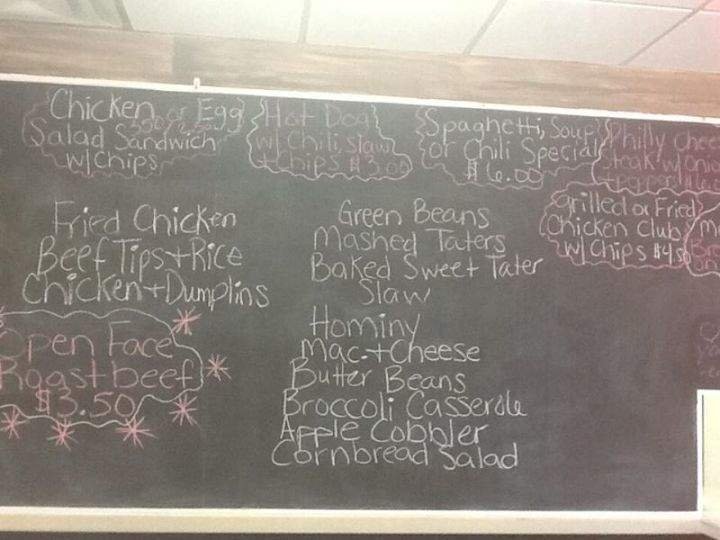 Chicken or Egg
Salad Sandwich
w/Chips
Hot Dog
w/ Chili, slaw
+ Chips $3.00
Spaghetti, Soup
or Chili Special
$6.00
Philly Chee
steak w/ onio
+ peppers
grilled or Fried
Chicken Club
w/ Chips $4.50
Fried Chicken
Beef Tips+Rice
Chicken+Dumplins
Open Face
Roast beef
$3.50
Green Beans
Mashed Taters
Baked Sweet Tater
Slaw
Hominy
Mac.+Cheese
Butter Beans
Broccoli Casserole
Apple Cobbler
Cornbread Salad